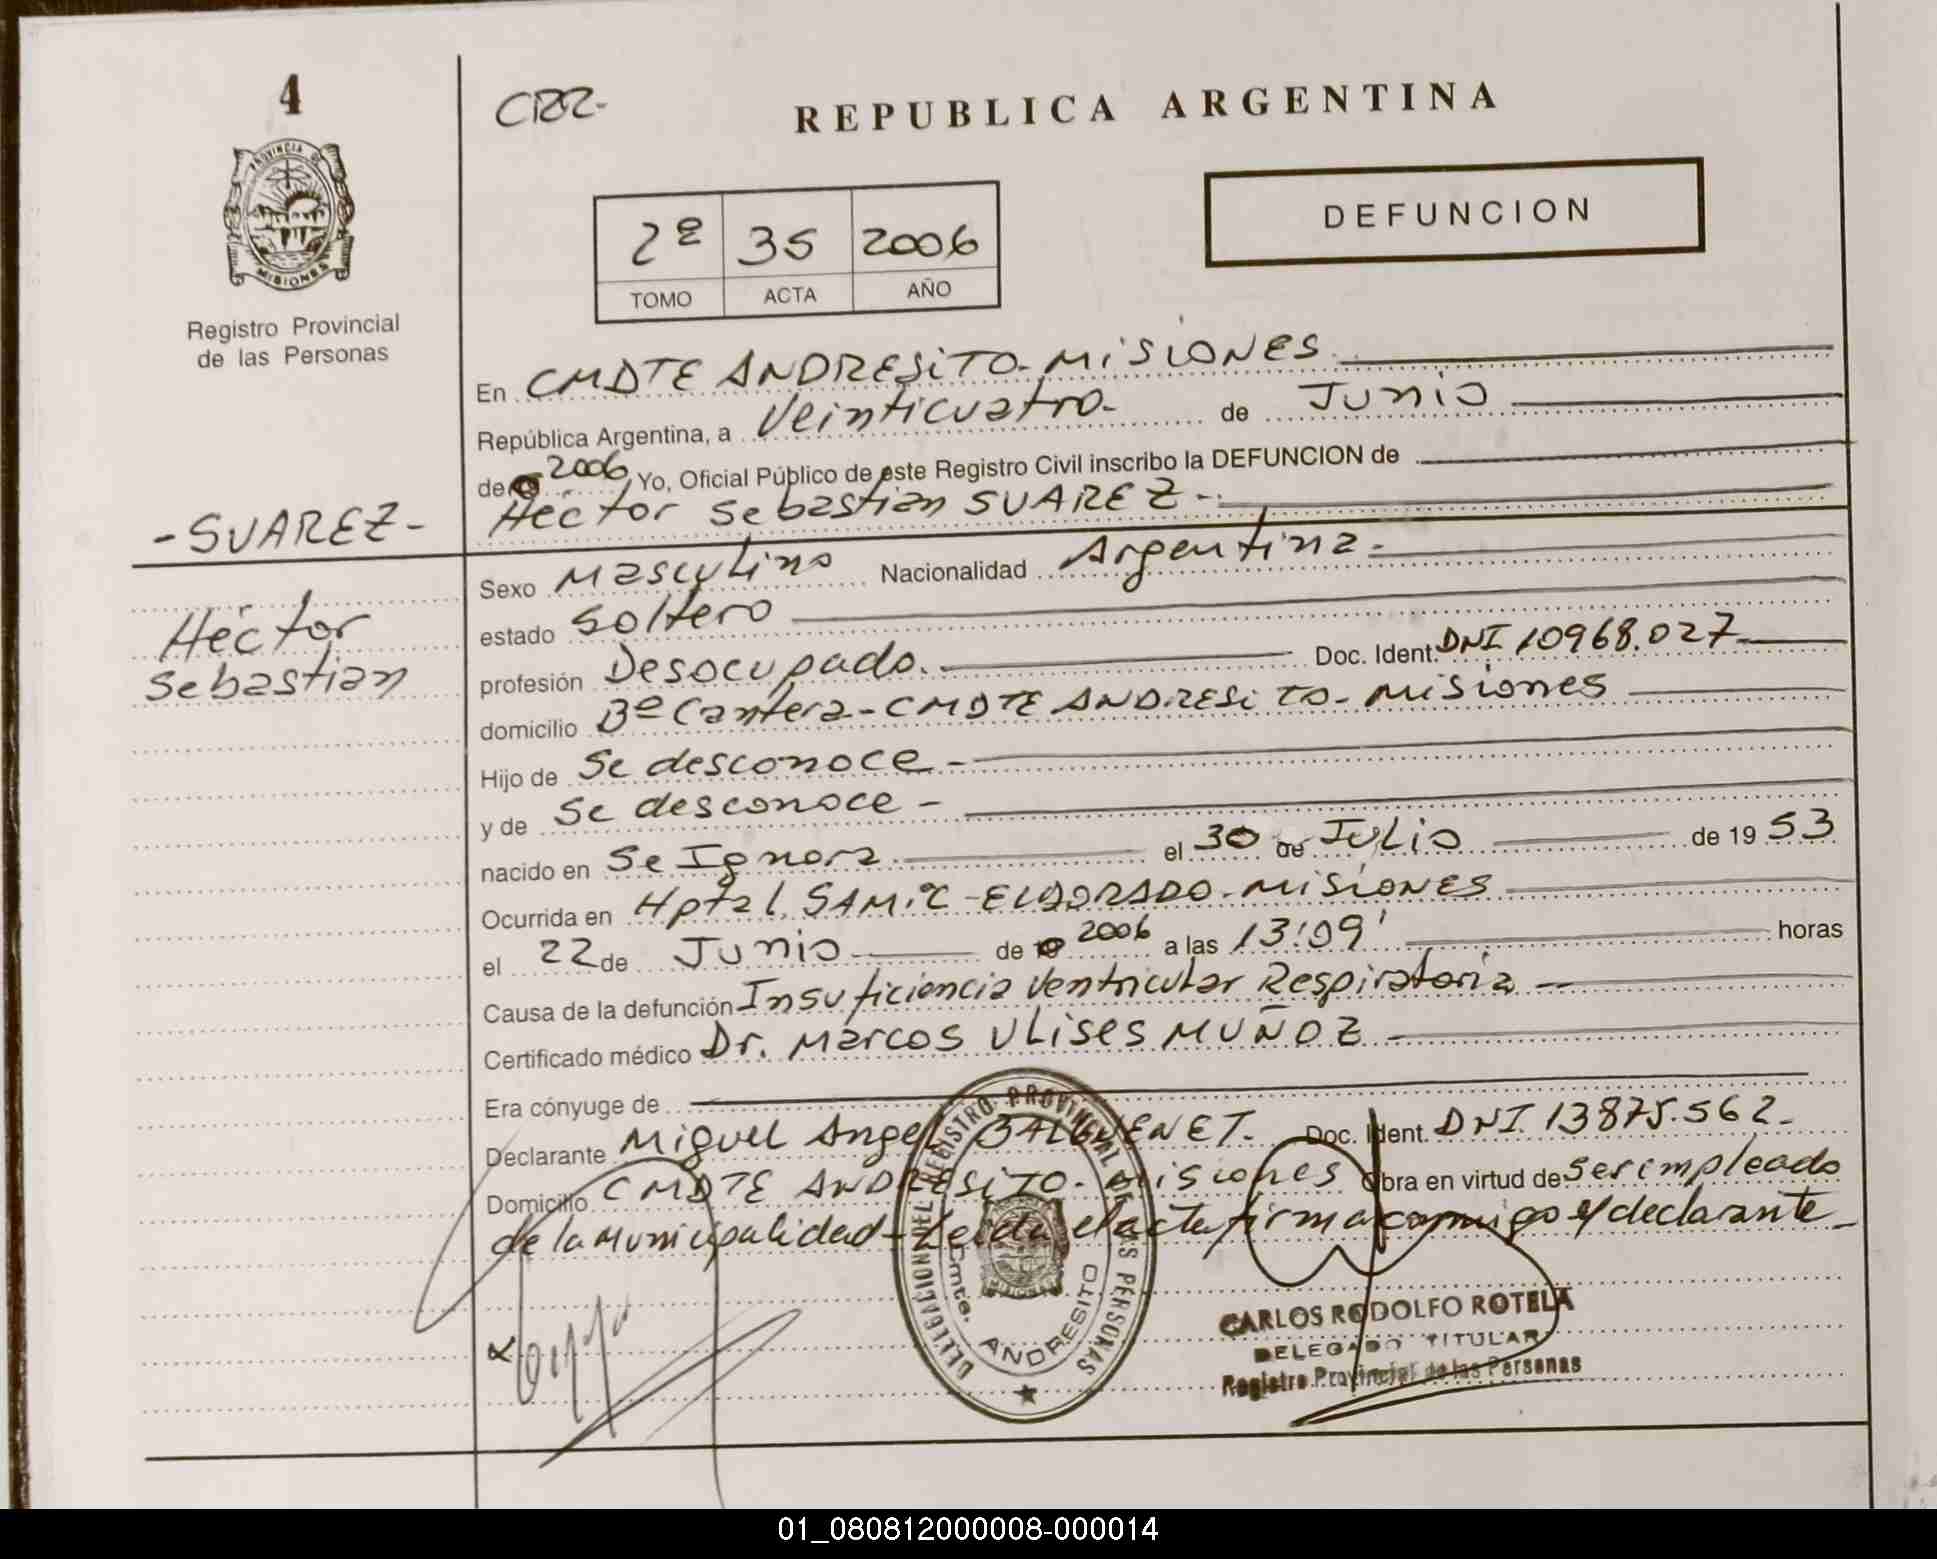 4
CRR-
REPUBLICA ARGENTINA
PROVINCIA DE
MISIONES
DEFUNCION
2º 35 2006
TOMO ACTA AÑO
Registro Provincial
de las Personas
En CMDTE ANDRESiTO-MiSiONES
República Argentina, a Veinticuatro- de Junio
de 2006 Yo, Oficial Público de este Registro Civil inscribo la DEFUNCION de
Héctor Sebastian SUAREZ-
-SUAREZ-
Héctor
Sebastian
Sexo Masculino Nacionalidad Argentina-
estado Soltero
profesión Desocupado. Doc. Ident. DNI 10968.027
domicilio Bº Cantera-CMDTE ANDRESiTO-Misiones
Hijo de Se desconoce-
y de Se desconoce-
nacido en Se Ignora el 30 de Julio de 19 53
Ocurrida en Hptal. SAMiC-ELDORADO-MiSiONES
el 22 de Junio de 2006 a las 13:09' horas
Causa de la defunción Insuficiencia Ventricular Respiratoria-
Certificado médico Dr. Marcos Ulises MUÑOZ-
Era cónyuge de
Declarante Miguel Angel Doc. Ident. DNI 13875.562-
Domicilio CMDTE ANDRESiTO-Misiones Obra en virtud de Ser empleado
de la Municipalidad-Leida el acta firma conmigo el declarante-
DELEGACION DEL REGISTRO PROVINCIAL DE LAS PERSONAS
Cmte. ANDRESITO
CARLOS RODOLFO ROTELA
DELEGADO TITULAR
Registro Provincial de las Personas
01_080812000008-000014